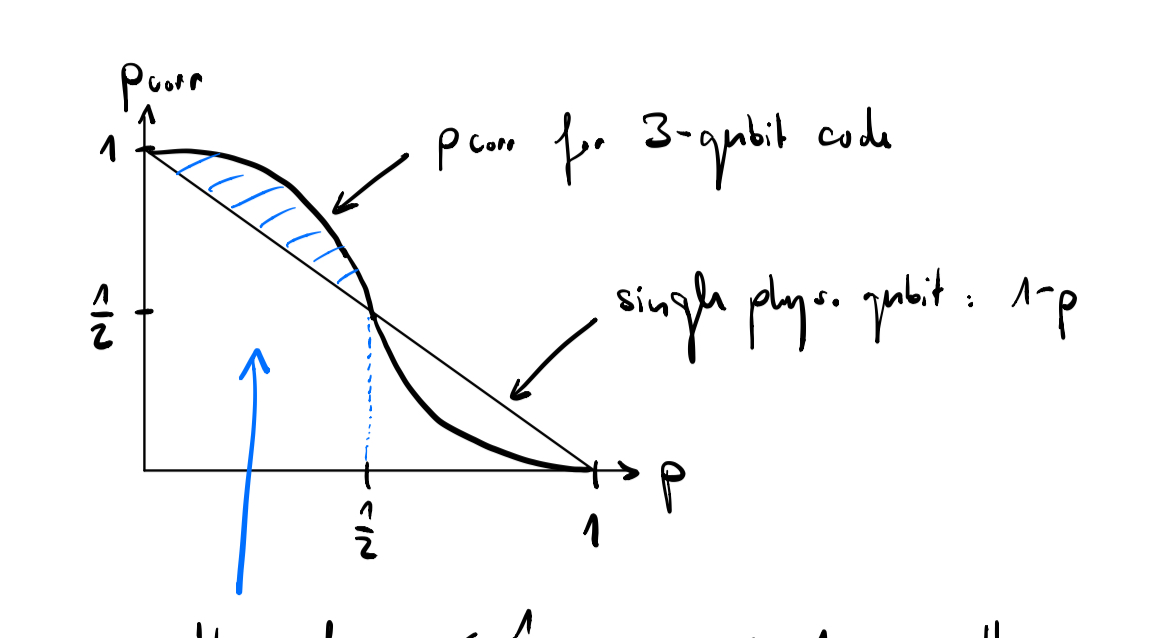 pcorr
1
pcorr for 3-qubit code
1/2
single phys. qubit: 1-p
p
1/2
1